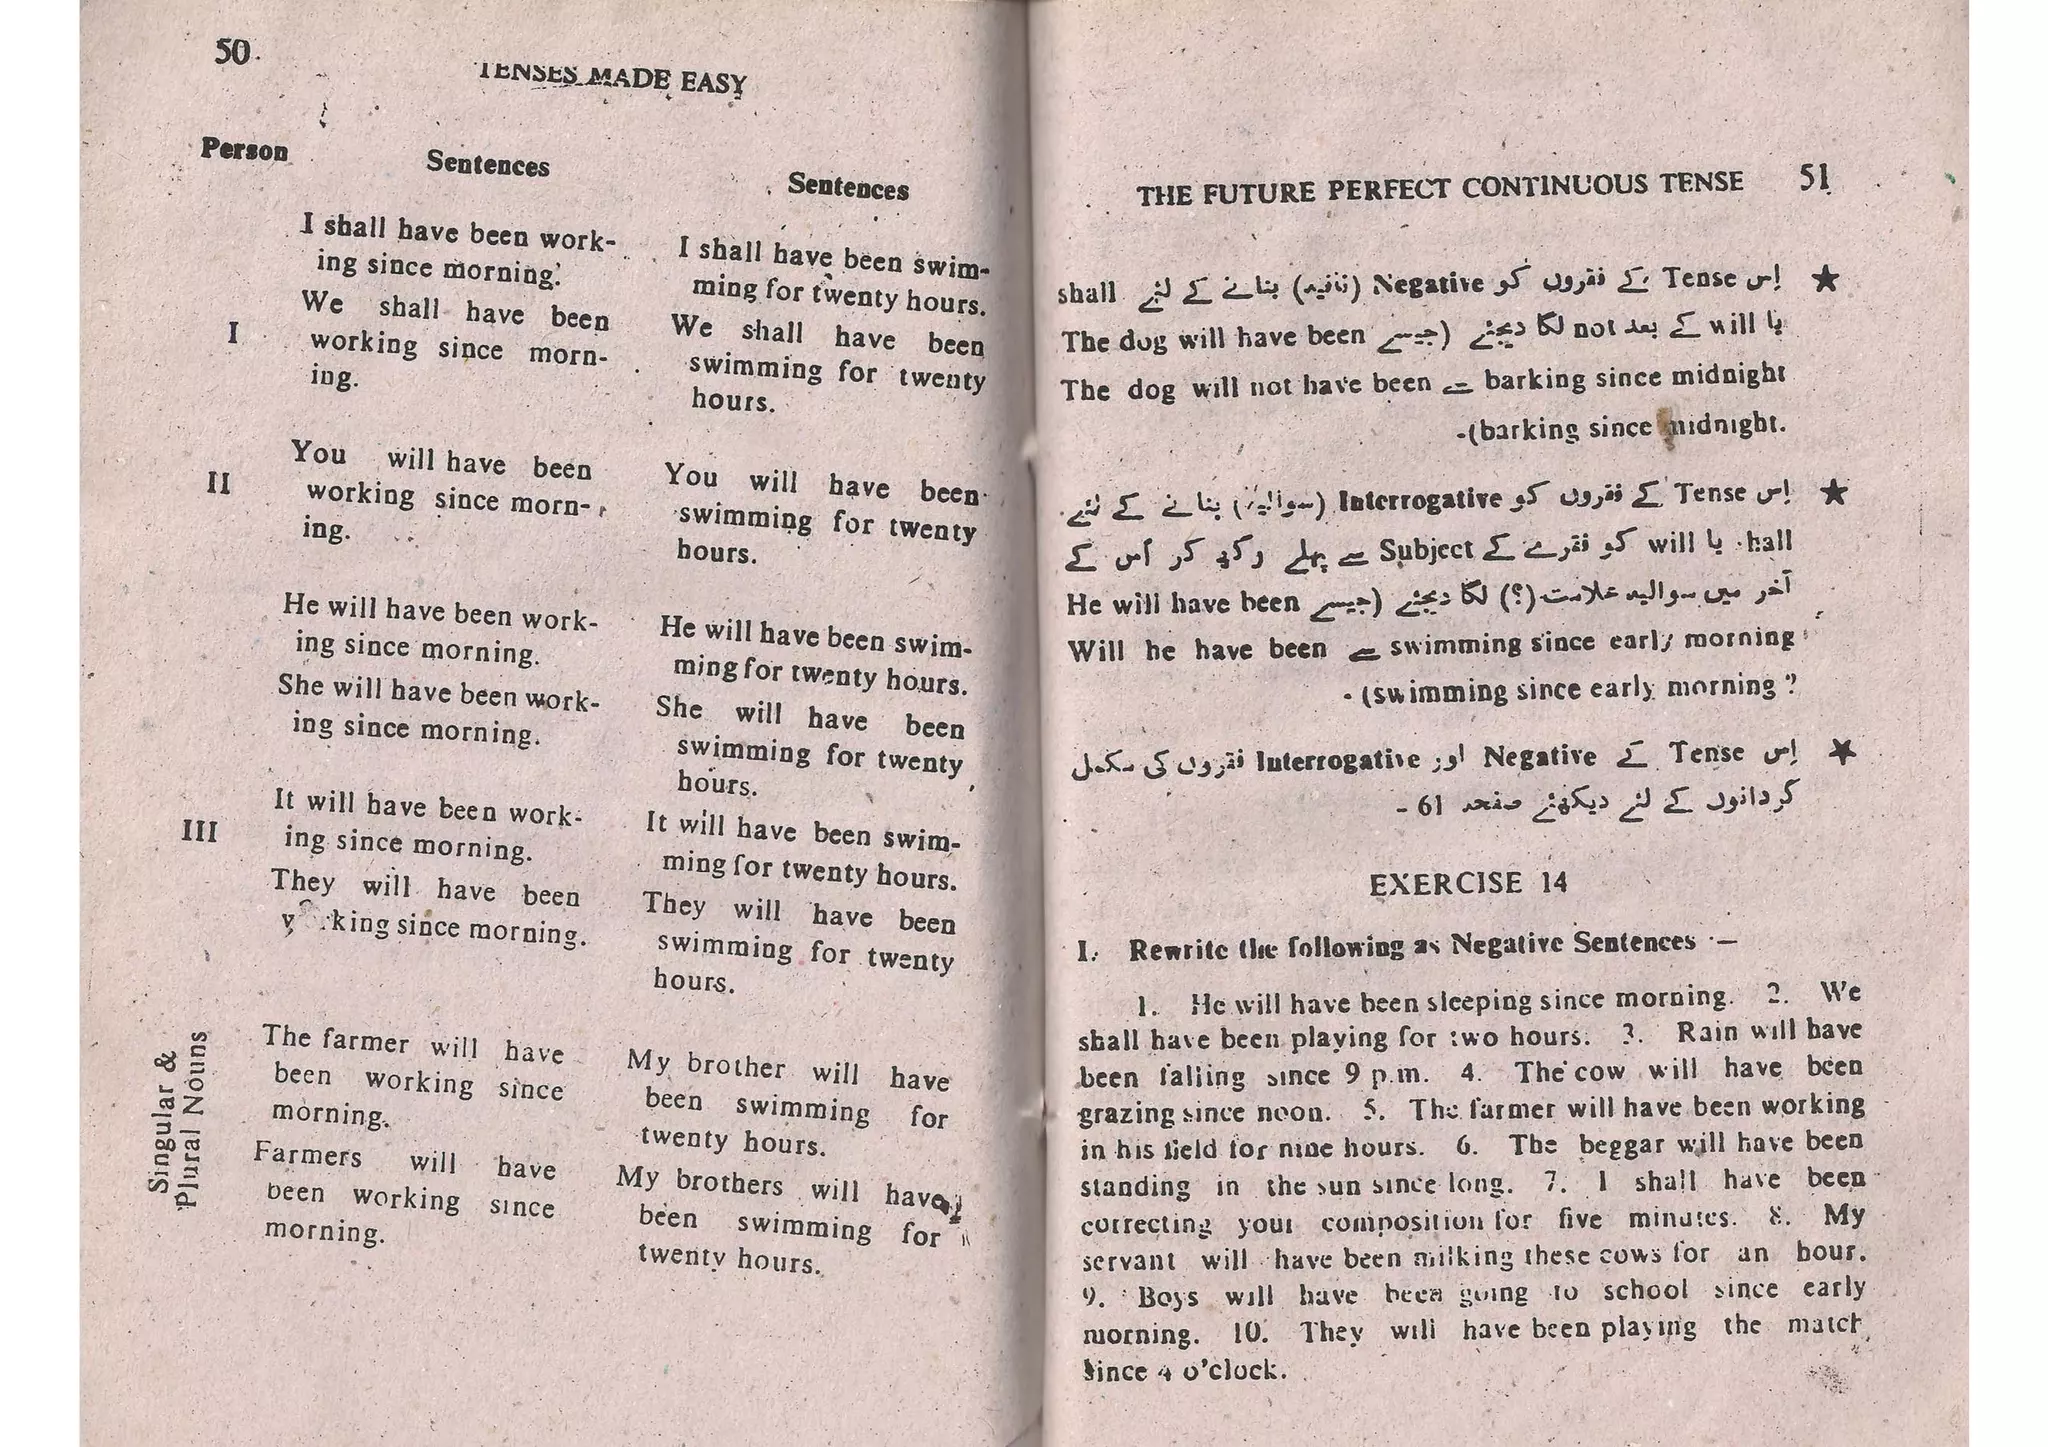 50
TENSES MADE EASY
Person
Sentences
Sentences
I
I shall have been work-
ing since morning.
We shall have been
working since morn-
ing.
I shall have been swim-
ming for twenty hours.
We shall have been
swimming for twenty
hours.
II
You will have been
working since morn-
ing.
You will have been
swimming for twenty
hours.
III
He will have been work-
ing since morning.
She will have been work-
ing since morning.
It will have been work-
ing since morning.
They will have been
working since morning.
He will have been swim-
ming for twenty hours.
She will have been
swimming for twenty
hours.
It will have been swim-
ming for twenty hours.
They will have been
swimming for twenty
hours.
Singular &
Plural Nouns
The farmer will have
been working since
morning.
Farmers will have
been working since
morning.
My brother will have
been swimming for
twenty hours.
My brothers will have
been swimming for
twenty hours.
THE FUTURE PERFECT CONTINUOUS TENSE 51
★ اِس Tense کے فقروں کو Negative (نافیہ) بنانے کے لئے shall
یا will کے بعد not لگا دیجئے (جیسے The dog will have been
barking since midnight سے The dog will not have been
barking since midnight.)-
★ اِس Tense کے فقروں کو Interrogative (سوالیہ) بنانے کے لئے
shall یا will کو فقرے کے Subject سے پہلے رکھ کر اس کے
آخر میں سوالیہ علامت (؟) لگا دیجئے (جیسے He will have been
swimming since early morning سے Will he have been
swimming since early morning ?)-
★ اِس Tense کے Negative اور Interrogative فقروں کی مکمل
گردانوں کے لئے دیکھئے صفحہ 61 -
EXERCISE 14
I. Rewrite the following as Negative Sentences :—
1. He will have been sleeping since morning. 2. We
shall have been playing for two hours. 3. Rain will have
been falling since 9 p.m. 4. The cow will have been
grazing since noon. 5. The farmer will have been working
in his field for nine hours. 6. The beggar will have been
standing in the sun since long. 7. I shall have been
correcting your composition for five minutes. 8. My
servant will have been milking these cows for an hour.
9. Boys will have been going to school since early
morning. 10. They will have been playing the match
since 4 o'clock.